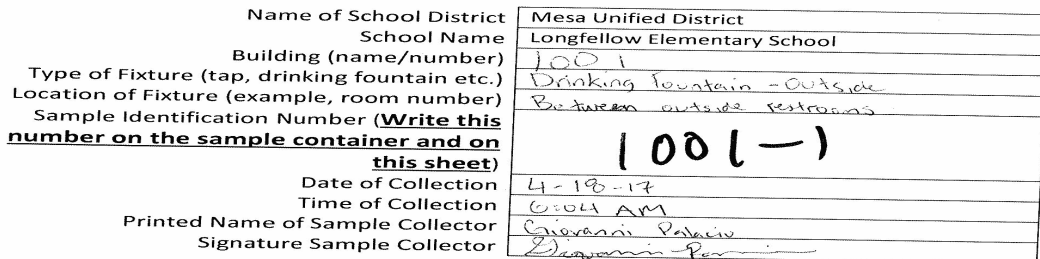 Name of School District Mesa Unified District
School Name Longfellow Elementary School
Building (name/number) 1001
Type of Fixture (tap, drinking fountain etc.) Drinking fountain - outside
Location of Fixture (example, room number) Between outside restrooms
Sample Identification Number (Write this
number on the sample container and on
this sheet) 1001-1
Date of Collection 4-18-17
Time of Collection 6:04 AM
Printed Name of Sample Collector Giovanni Palacio
Signature Sample Collector Giovanni